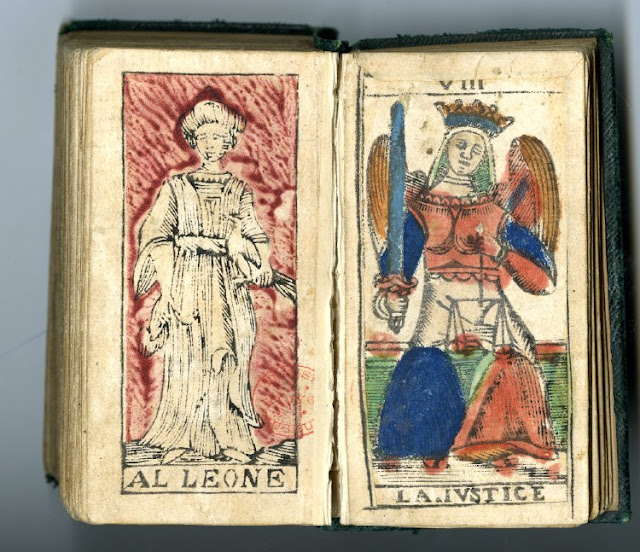 AL LEONE
VIII
LA.IVSTICE